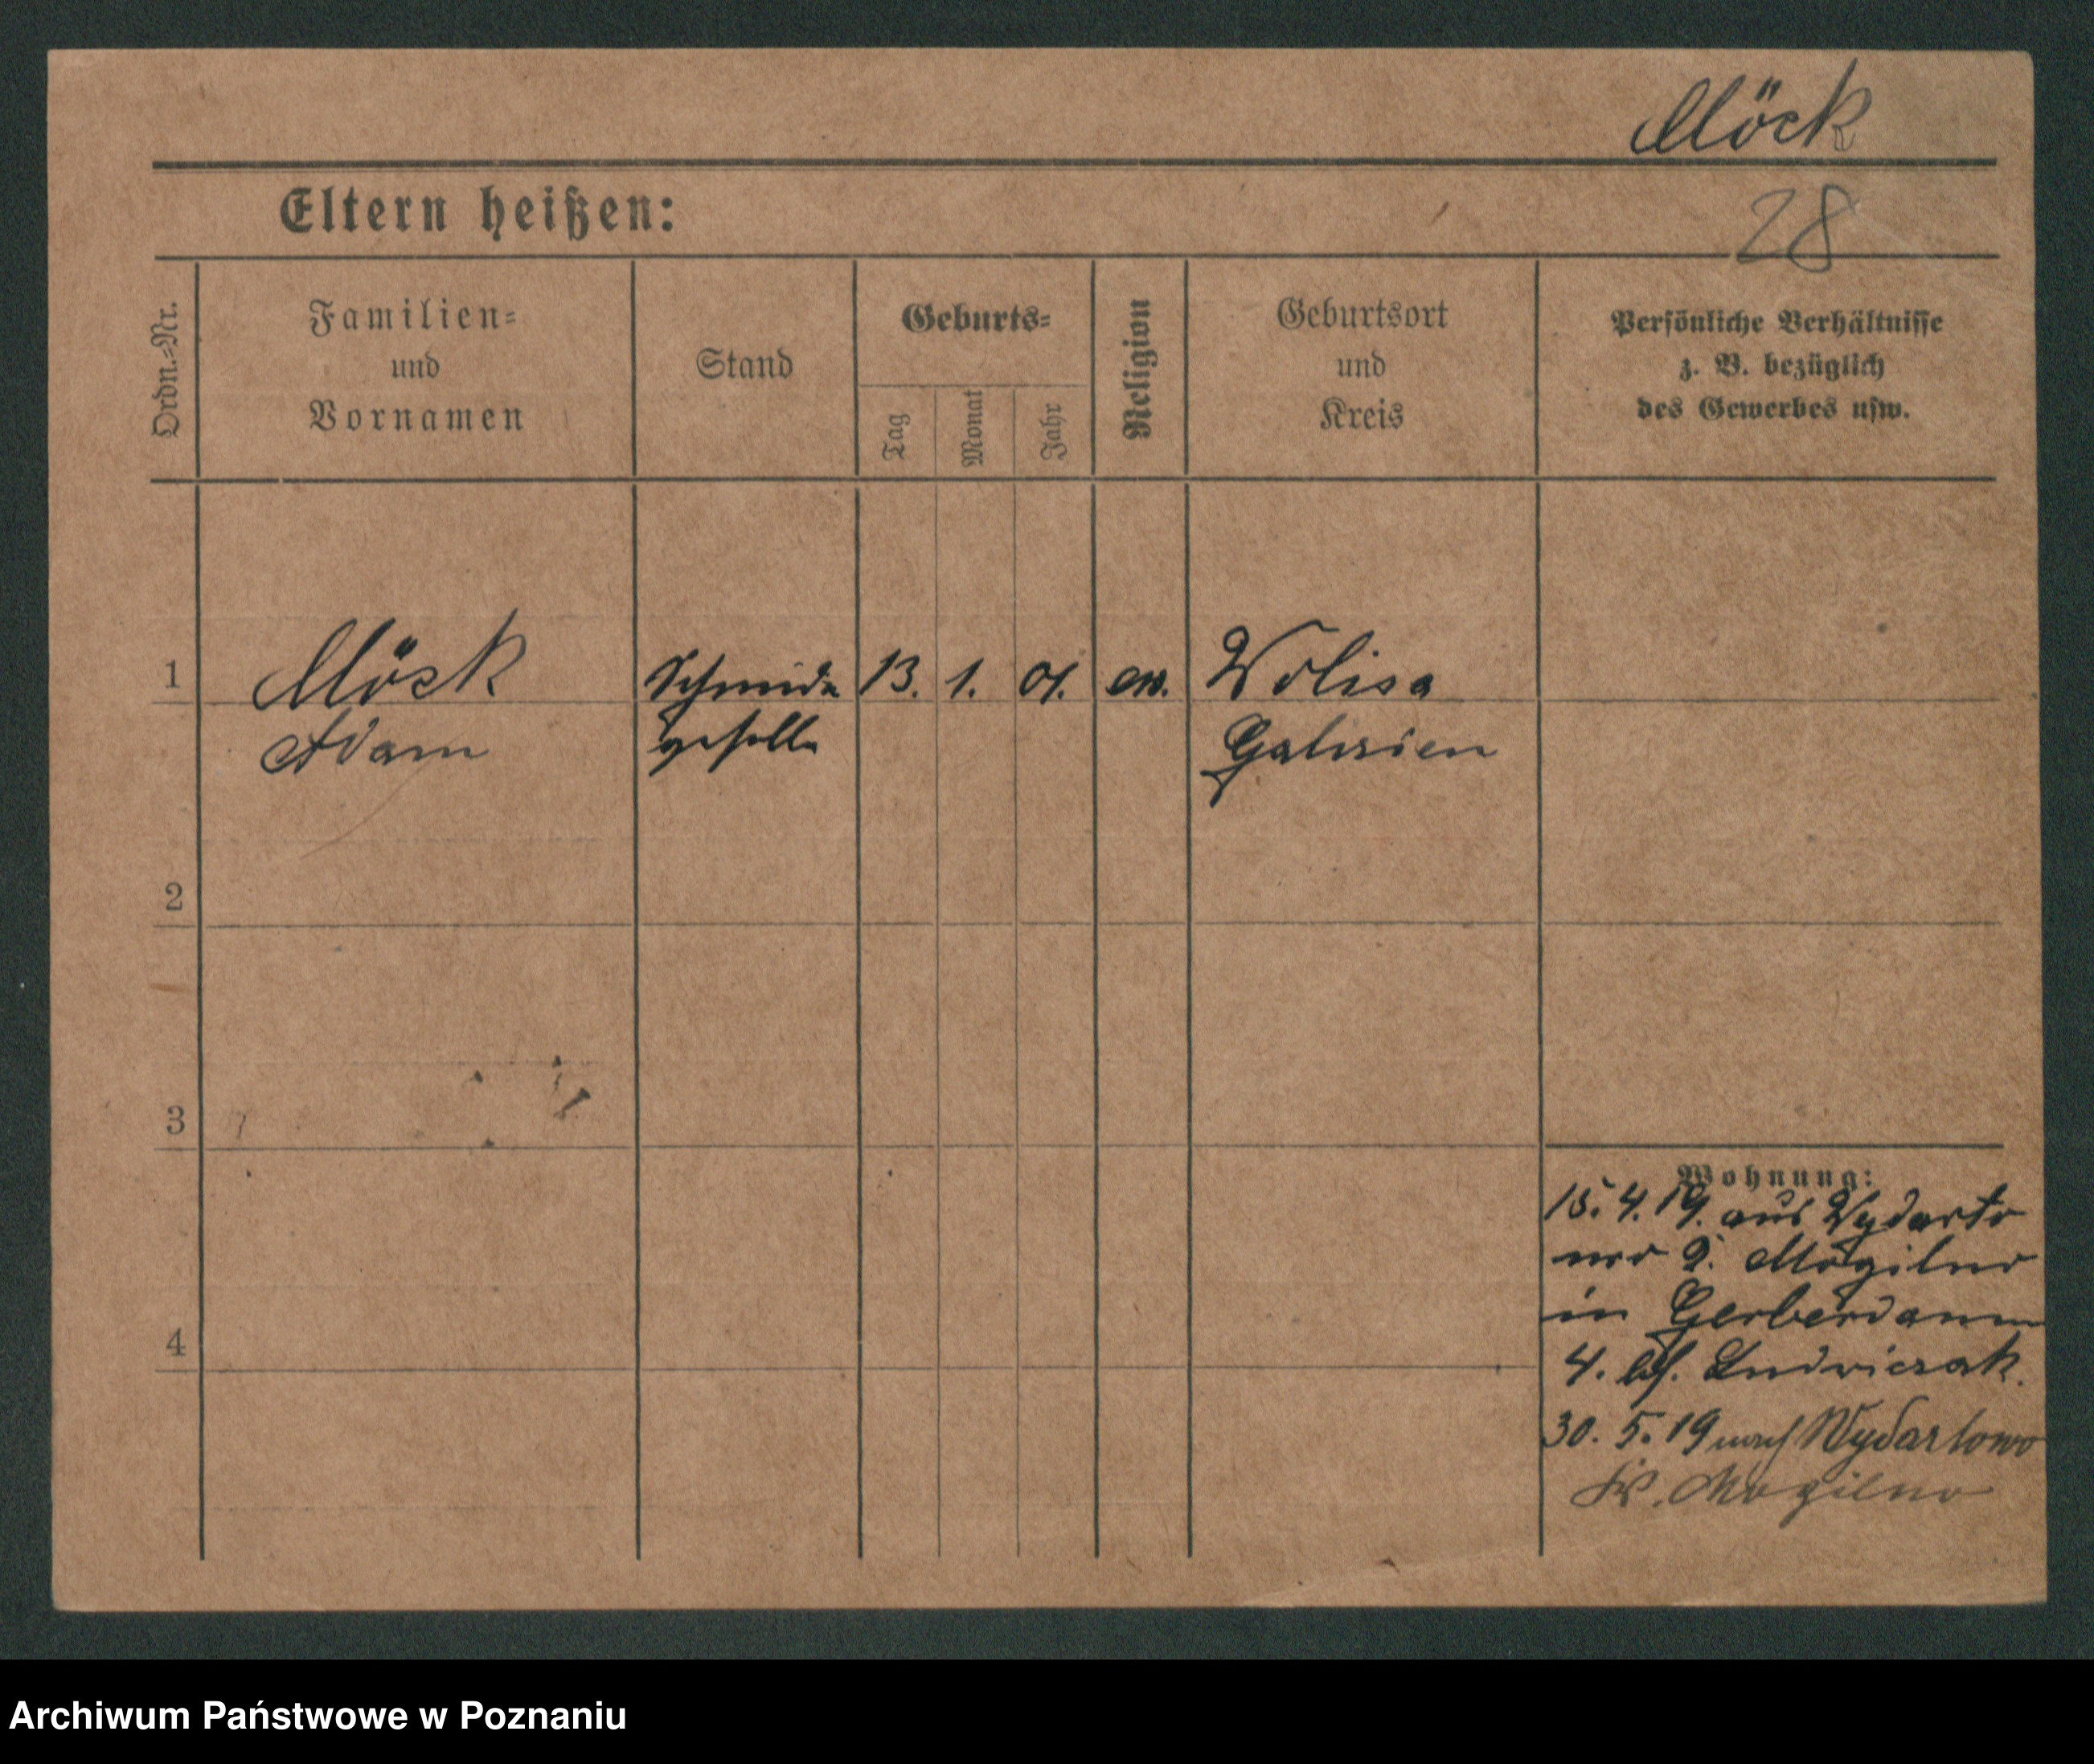 Möck
28
Eltern heißen:
Ordn.-Nr.
Familien-
und
Vornamen
Stand
Geburts-
Tag
Monat
Jahr
Religion
Geburtsort
und
Kreis
Persönliche Verhältnisse
z. B. bezüglich
des Gewerbes usw.
1
Möck
Adam
Schmide
geselle
13.
1.
01.
ew.
Wolisa
Galizien
2
3
4
Wohnung:
15.4.19. aus Wydarto
wo Mogilno
in Gerberdamm
4. bs. Ludwiczak.
30. 5. 19 nach Wydartowo
Kr. Mogilno
Archiwum Państwowe w Poznaniu